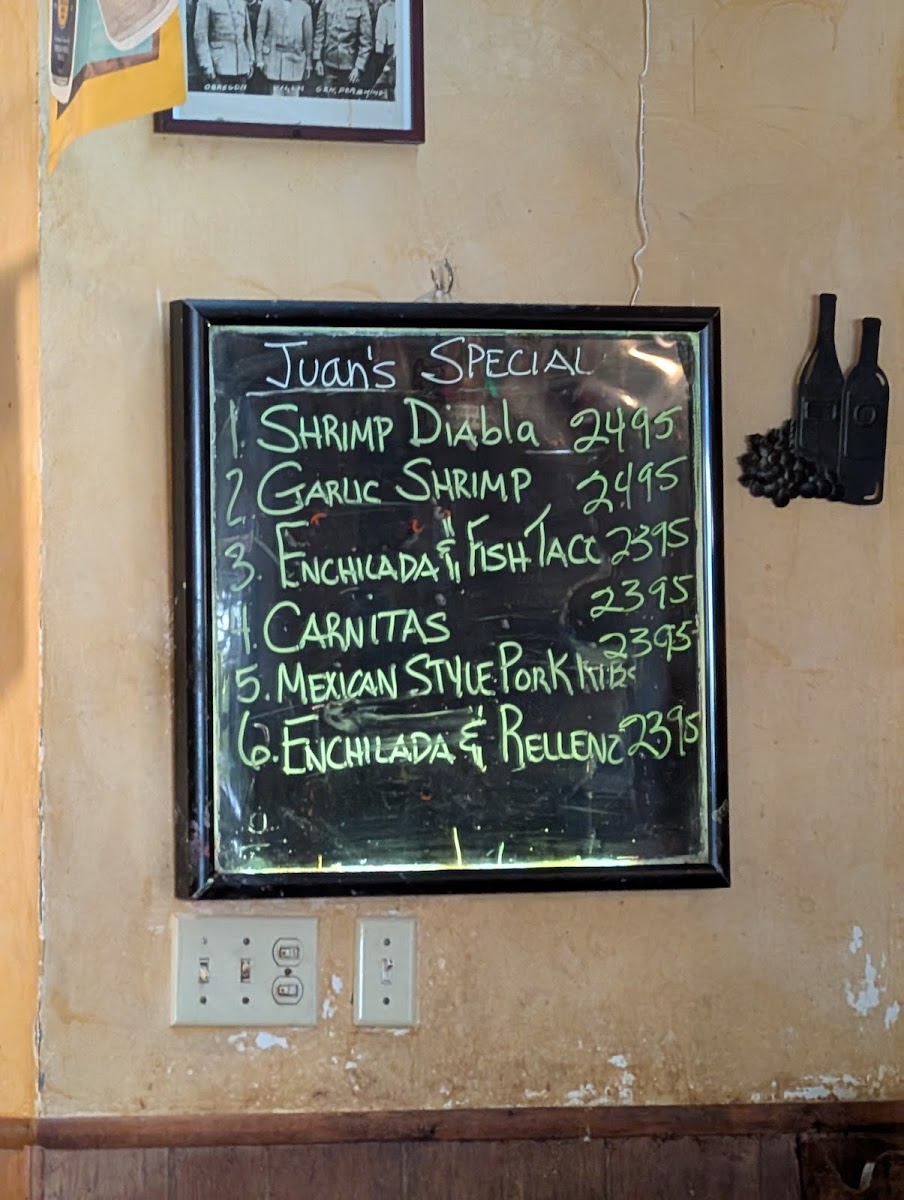 OBREGON VILLA GEN.
Juan's SPECIAL
1. SHRIMP Diabla 2495
2 GARLIC SHRIMP 2495
3. ENCHILADA & FISH TACO 2395
4. CARNITAS 2395
5. MEXICAN STYLE PORK RIBS 2395
6. ENCHILADA & RELLENO 2395